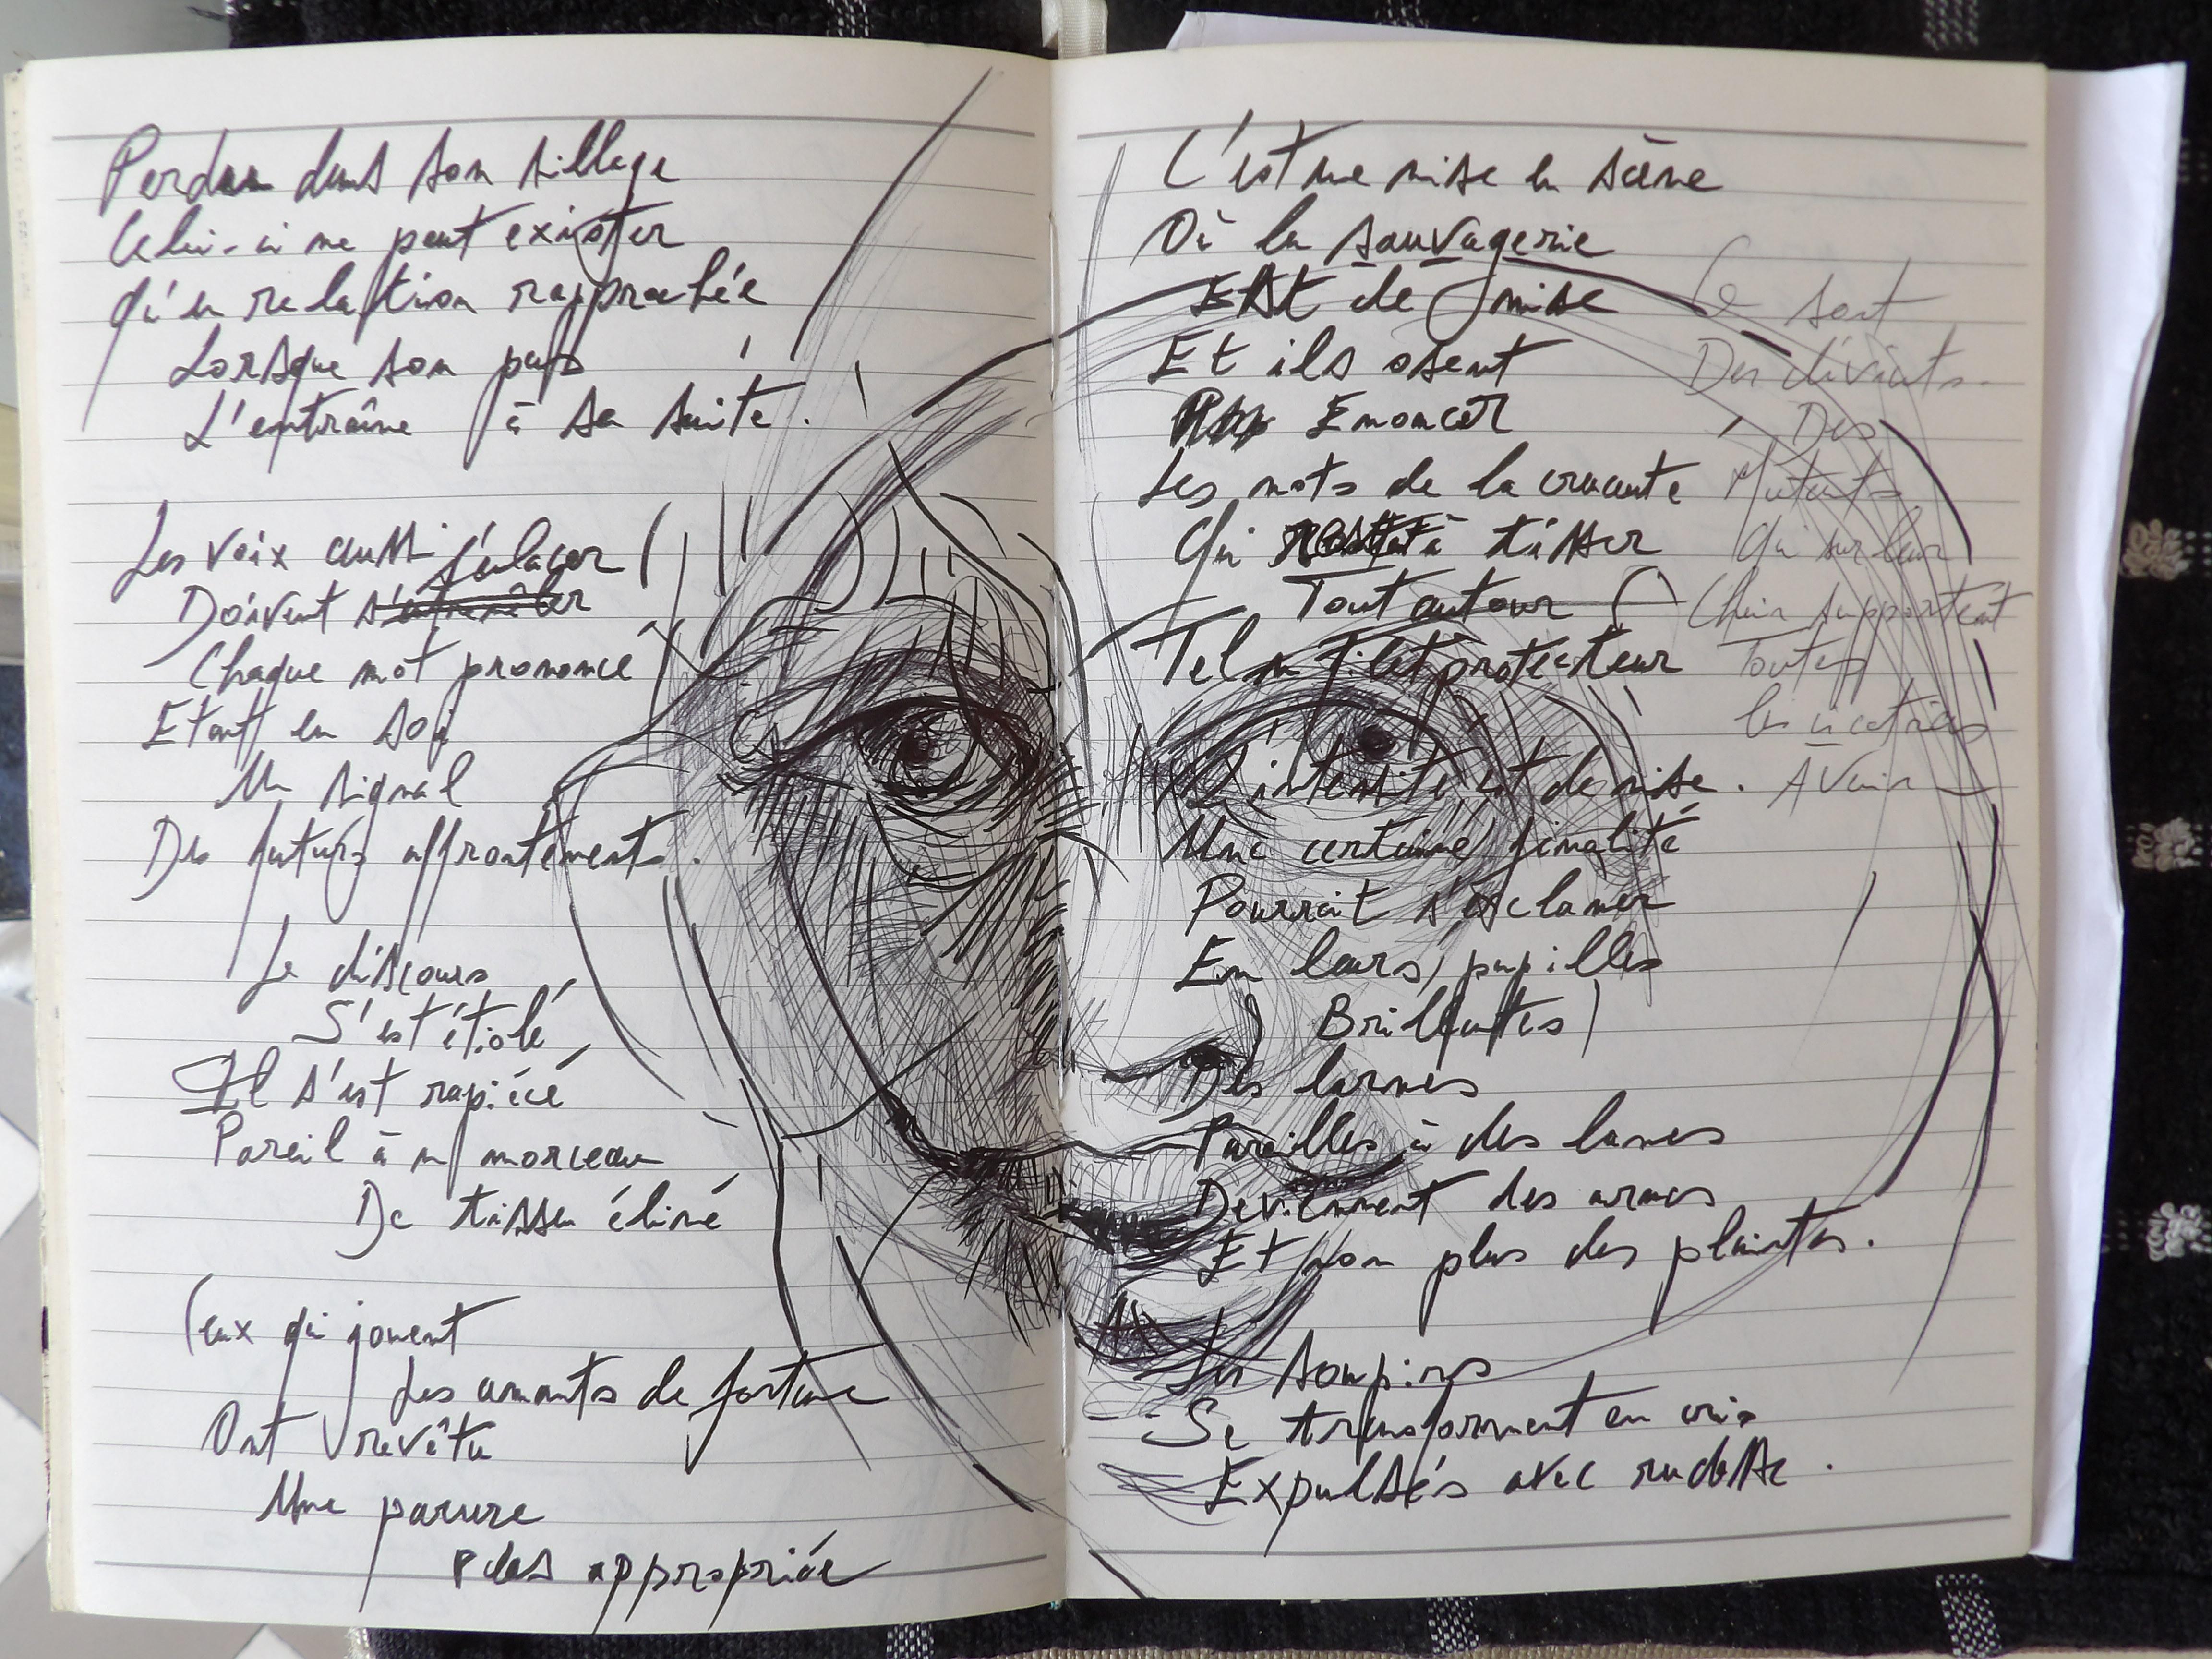 Perdu dans son sillage
Celui-ci ne peut exister
qu'en relation rapprochée
Lorsque son pas
L'entraîne à sa suite.
Les voix aussi s'enlacer
Doivent s'entremêler
Chaque mot prononcé
Etant en soi
Un signal
Des futurs affrontements.
Le discours
S'est étiolé
Il s'est rapiécé
Pareil à un morceau
De tissu élimé
Ceux qui jouent
Les amants de fortune
Ont revêtu
Une parure
plus appropriée
C'est une mise en scène
Où la sauvagerie
Est de mise
Et ils osent
Enoncer
Les mots de la croute
Qui à tisser
Tout autour
Tel un filet protecteur
L'intensité est de mise.
Une certaine finalité
Pourrait s'exclamer
En leurs pupilles
Brillantes
Des larmes
Pareilles à des lames
Deviennent des armes
Et non plus des plaintes.
Les soupirs
Se transforment en cris
Expulsés avec rudesse.
Ce sont
Des
Mutants
Qui sur leur
Chair supportent
Toutes
les cicatrices
A venir